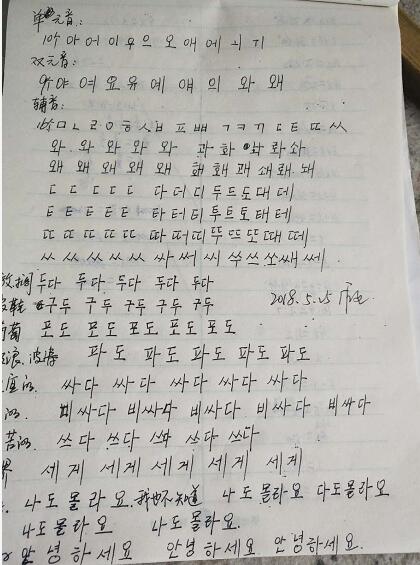 单元音:
10个 아 어 이 우 으 오 애 에 외 기
双元音:
9个 야 여 요 유 예 얘 의 와 왜
辅音:
16个 ㅁ ㄴ ㄹ ㅇ ㅎ ㅅ ㅂ ㅍ ㅃ ㄱ ㅋ ㄲ ㄷ ㅌ ㄸ ㅆ
와 와 와 와 와 과 화 놔 롸 솨
왜 왜 왜 왜 왜 홰 홰 쾌 쇄 뢔 돼
ㄷ ㄷ ㄷ ㄷ ㄷ 다 더 디 두 드 도 대 데
ㅌ ㅌ ㅌ ㅌ ㅌ 타 터 티 투 트 토 태 테
ㄸ ㄸ ㄸ ㄸ ㄸ 따 떠 띠 뚜 뜨 또 때 떼
ㅆ ㅆ ㅆ ㅆ ㅆ 싸 써 씨 쑤 쓰 쏘 쌔 쎄
두다 두다 두다 두다 두다
구두 구두 구두 구두 구두 2018.5.25
포도 포도 포도 포도 포도
波涛 파도 파도 파도 파도 파도
싸다 싸다 싸다 싸다 싸다
비싸다 비싸다 비싸다 비싸다 비싸다
苦的 쓰다 쓰다 쓰다 쓰다 쓰다
界 세계 세계 세계 세계 세계
나도몰라요. 我也不知道 나도몰라요 다도몰라요
나도몰라요 나도몰라요.
안녕하세요 안녕하세요 안녕하세요.